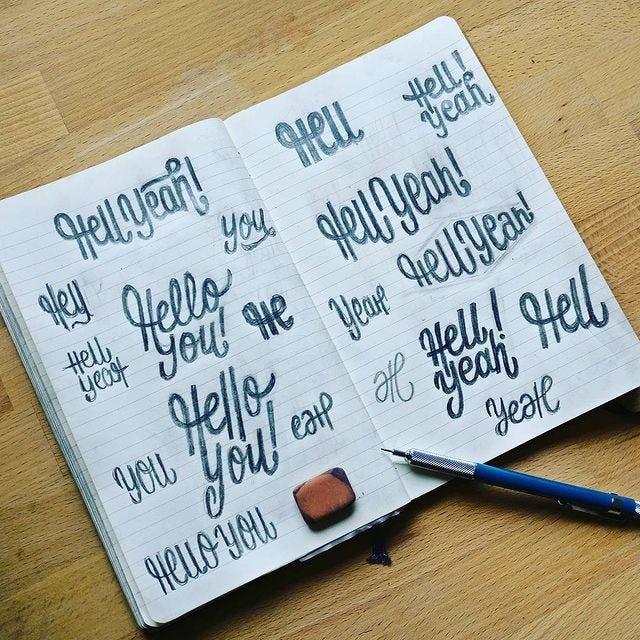 Hell Yeah!
you
Hey
Hello
you!
He
Hell
yeaH
Hello
You!
eaH
YOU
HELLO YOU
Hell
Hell!
yeah
Hell Yeah!
Hell Yeah!
Yeah
Hell!
yeah
Hell
aH
yeaH